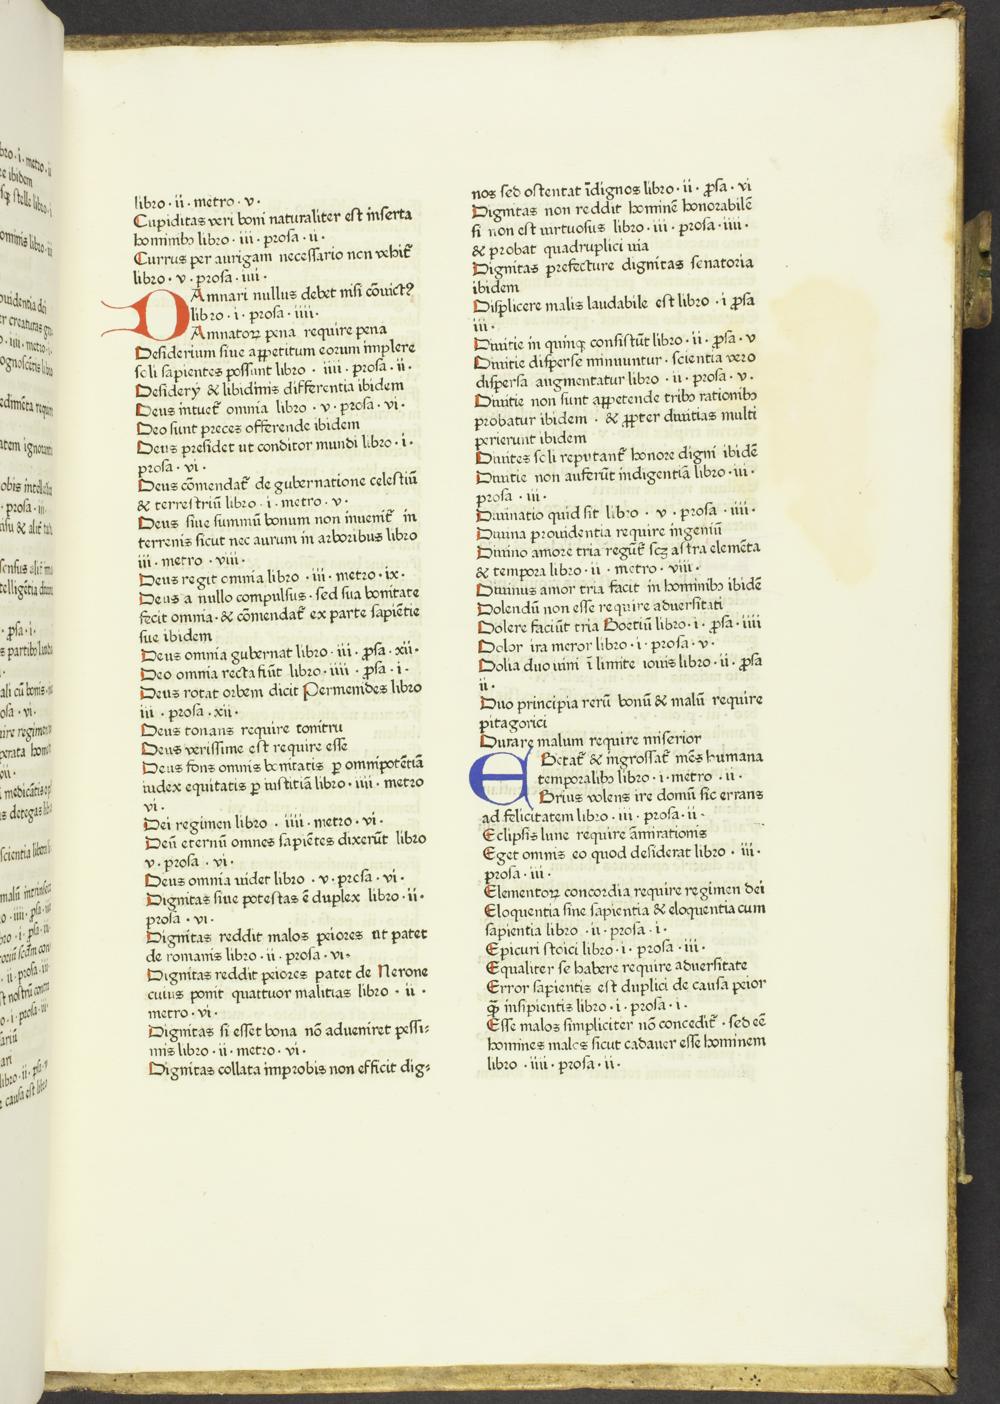 libro · ii · metro · v ·
Cupiditas veri boni naturaliter est inserta
hominibꝰ libro · iii · prosa · ii ·
Currus per aurigam necessario non vehit᷑
libro · v · prosa · iiii ·
DAmnari nullus debet nisi cōuictꝰ
libro · i · prosa · iiii ·
Amnatoꝝ pena require pena
Desiderium siue appetitum eorum implere
soli sapientes possunt libro · iiii · prosa · ii ·
Desiderÿ & libidinis differentia ibidem
Deus intuet᷑ omnia libro · v · prosa · vi ·
Deo sunt preces offerende ibidem
Deus presidet ut conditor mundi libro · i ·
prosa · vi ·
Deus cōmendat᷑ de gubernatione celestiū
& terrestriū libro · i · metro · v ·
Deus siue summū bonum non inuenit᷑ in
terrenis sicut nec aurum in arboribus libro
iii · metro · viii ·
Deus regit omnia libro · iii · metro · ix ·
Deus a nullo compulsus · sed sua bonitate
fecit omnia · & cōmendat᷑ ex parte sapiētie
sue ibidem
Deus omnia gubernat libro · iii · ꝓsa · xii ·
Deo omnia recta fiūt libro · iiii · ꝓsa · i ·
Deus rotat orbem dicit Permenides libro
iii · prosa · xii ·
Deus tonans require tonitru
Deus verissime est require esse
Deus fons omnis bonitatis ꝑ omnipotētiā
iudex equitatis ꝑ iustitiā libro · iiii · metro
vi ·
Dei regimen libro · iiii · metro · vi ·
Deū eternū omnes sapiētes dixerūt libro
v · prosa · vi ·
Deus omnia uidet libro · v · prosa · vi ·
Dignitas siue potestas ē duplex libro · ii ·
prosa · vi ·
Dignitas reddit malos peiores ut patet
de romanis libro · ii · prosa · vi ·
Dignitas reddit peiores patet de Nerone
cuius ponit quattuor malitias libro · ii ·
metro · vi ·
Dignitas si esset bona nō adueniret pessi⸗
mis libro · ii · metro · vi ·
Dignitas collata improbis non efficit dig⸗
nos sed ostentat īdignos libro · ii · ꝓsa · vi
Dignitas non reddit hominē honorabilē
si non est uirtuosus libro · iii · prosa · iiii ·
& probat quadruplici uia
Dignitas prefecture dignitas senatoria
ibidem
Displicere malis laudabile est libro · i ꝓsa
iii ·
Diuitie in quinqꝫ consistūt libro · ii · ꝓsa · v
Diuitie disperse minuuntur · scientia vero
dispersa augmentatur libro · ii · prosa · v ·
Diuitie non sunt appetende tribꝰ rationibꝰ
probatur ibidem · & ꝓpter diuitias multi
perierunt ibidem
Diuites soli reputant᷑ honore digni ibidē
Diuitie non auferūt indigentiā libro · iii ·
prosa · iii ·
Diuinatio quid sit libro · v · prosa · iiii ·
Diuina prouidentia require ingeniū
Diuino amore tria regūt᷑ scꝫ astra elemēta
& tempora libro · ii · metro · viii ·
Diuinus amor tria facit in hominibꝰ ibidē
Dolendū non esse require aduersitati
Dolere faciūt tria Boetiū libro · i · ꝓsa · iiii
Dolor ira meror libro · i · prosa · v ·
Dolia duo uini ī limite iouis libro · ii · ꝓsa
ii ·
Duo principia rerū bonū & malū require
pitagorici
Durare malum require miserior
EBetat᷑ & ingrossat᷑ mēs humana
temporalibꝰ libro · i · metro · ii ·
Ebrius volens ire domū sic errans
ad felicitatem libro · iii · prosa · ii ·
Eclipsis lune require āmirationis
Eget omnis eo quod desiderat libro · iii ·
prosa · iii ·
Elementoꝝ concordia require regimen dei
Eloquentia sine sapientia & eloquentia cum
sapientia libro · ii · prosa · i ·
Epicuri stoici libro · i · prosa · iii ·
Equaliter se habere require aduersitate
Error sapientis est duplici de causa peior
ꝙ̄ insipientis libro · i · prosa · i ·
Esse malos simpliciter nō concedit᷑ · sed eē
homines malos sicut cadauer esse hominem
libro · iiii · prosa · ii ·